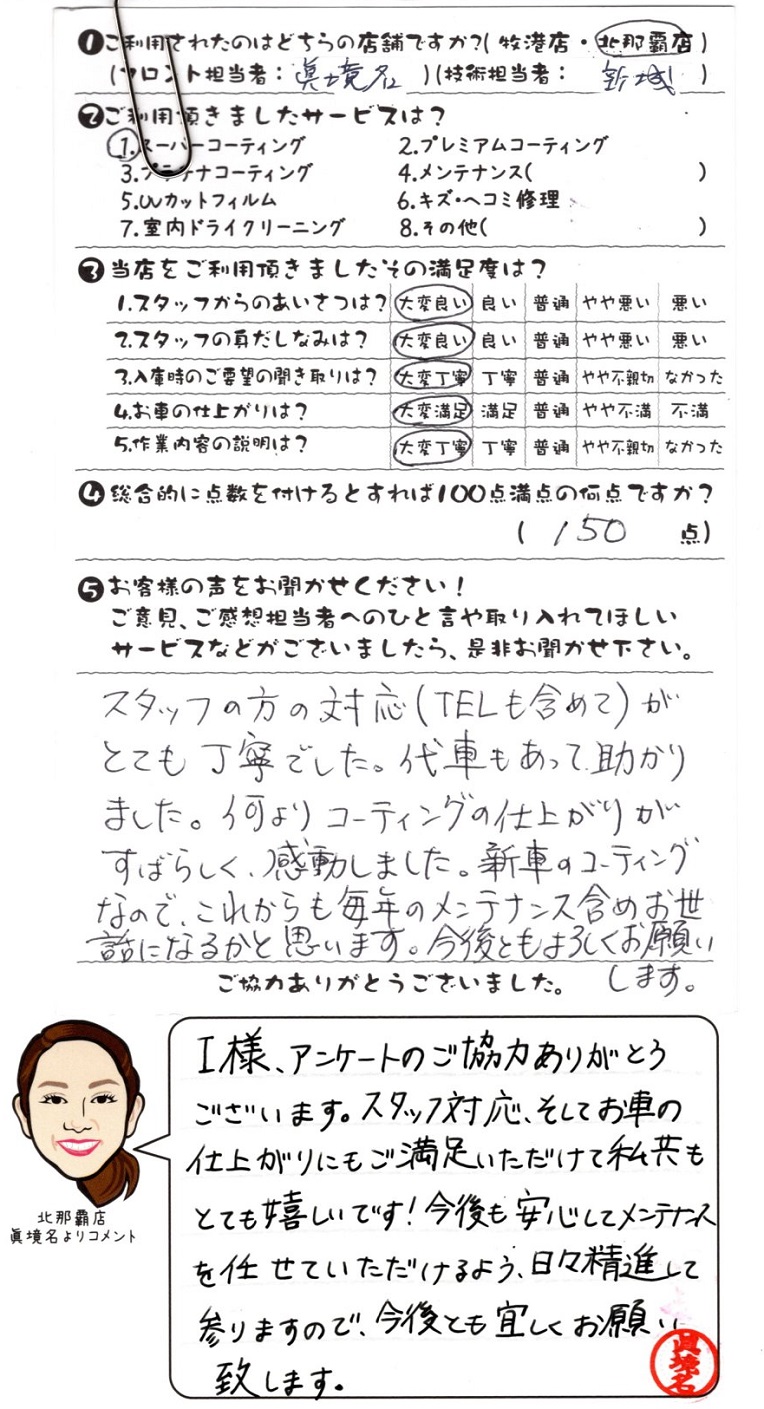 ❶ご利用されたのはどちらの店舗ですか?(牧港店・北那覇店)
(フロント担当者：眞境名)(技術担当者：新城)
❷ご利用頂きましたサービスは?
1.スーパーコーティング 2.プレミアムコーティング
3.プラチナコーティング 4.メンテナンス( )
5.UVカットフィルム 6.キズ・ヘコミ修理
7.室内ドライクリーニング 8.その他( )
❸当店をご利用頂きましたその満足度は?
1.スタッフからのあいさつは? 大変良い 良い 普通 やや悪い 悪い
2.スタッフの身だしなみは? 大変良い 良い 普通 やや悪い 悪い
3.入庫時のご要望の聞き取りは? 大変丁寧 丁寧 普通 やや不親切 なかった
4.お車の仕上がりは? 大変満足 満足 普通 やや不満 不満
5.作業内容の説明は? 大変丁寧 丁寧 普通 やや不親切 なかった
❹総合的に点数を付けるとすれば100点満点の何点ですか?
(150 点)
❺お客様の声をお聞かせください!
ご意見、ご感想担当者へのひと言や取り入れてほしい
サービスなどがございましたら、是非お聞かせ下さい。
スタッフの方の対応(TELも含めて)が
とても丁寧でした。代車もあって助かり
ました。何よりコーティングの仕上がりが
すばらしく、感動しました。新車のコーティング
なので、これからも毎年のメンテナンス含めお世
話になるかと思います。今後ともよろしくお願い
します。
ご協力ありがとうございました。
I様、アンケートのご協力ありがとう
ございます。スタッフ対応、そしてお車の
仕上がりにもご満足いただけて私共も
とても嬉しいです!今後も安心してメンテナンス
を任せていただけるよう、日々精進して
参りますので、今後とも宜しくお願い
致します。
眞境名
北那覇店
眞境名よりコメント